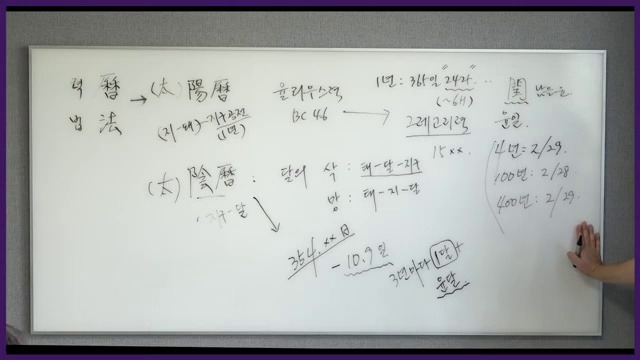 력 曆
법 法
(太) 陽曆
(지-태) - 지구공전
(1년)
율리우스력
BC 46
1년: 365일 "24각" ..
(~6h)
그레고리력
15××.
閏 남을윤
윤일
4년: 2/29.
100년: 2/28
400년: 2/29.
(太) 陰曆 :
지구-달
달의 삭 : 태-달-지구
망 : 태-지-달
354.××日
-10.9일
3년마다 1달+
윤달